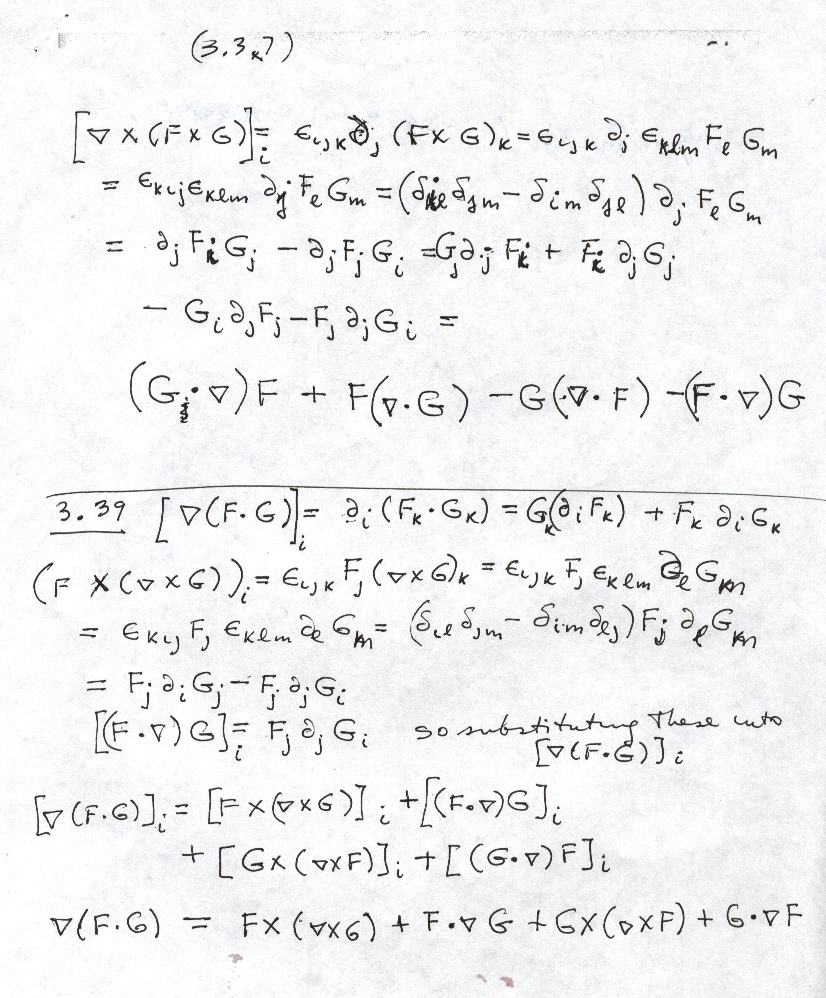 (3.37)
[∇ × (F × G)]ᵢ = ϵᵢⱼₖ ∂ⱼ (F × G)ₖ = ϵᵢⱼₖ ∂ⱼ ϵₖₗₘ Fₗ Gₘ
= ϵₖᵢⱼ ϵₖₗₘ ∂ⱼ Fₗ Gₘ = (δᵢₗ δⱼₘ − δᵢₘ δⱼₗ) ∂ⱼ Fₗ Gₘ
= ∂ⱼ Fᵢ Gⱼ − ∂ⱼ Fⱼ Gᵢ = Gⱼ ∂ⱼ Fᵢ + Fᵢ ∂ⱼ Gⱼ
− Gᵢ ∂ⱼ Fⱼ − Fⱼ ∂ⱼ Gᵢ =
(G · ∇) F + F(∇ · G) − G(∇ · F) − (F · ∇)G
3.39 [∇(F · G)]ᵢ = ∂ᵢ (Fₖ · Gₖ) = Gₖ(∂ᵢ Fₖ) + Fₖ ∂ᵢ Gₖ
(F × (∇ × G))ᵢ = ϵᵢⱼₖ Fⱼ (∇ × G)ₖ = ϵᵢⱼₖ Fⱼ ϵₖₗₘ ∂ₗ Gₘ
= ϵₖᵢⱼ Fⱼ ϵₖₗₘ ∂ₗ Gₘ = (δᵢₗ δⱼₘ − δᵢₘ δₗⱼ) Fⱼ ∂ₗ Gₘ
= Fⱼ ∂ᵢ Gⱼ − Fⱼ ∂ⱼ Gᵢ
[(F · ∇) G]ᵢ = Fⱼ ∂ⱼ Gᵢ so substituting these into
[∇(F · G)]ᵢ
[∇(F · G)]ᵢ = [F × (∇ × G)]ᵢ + [(F · ∇)G]ᵢ
+ [G × (∇ × F)]ᵢ + [(G · ∇) F]ᵢ
∇(F · G) = F × (∇ × G) + F · ∇ G + G × (∇ × F) + G · ∇ F